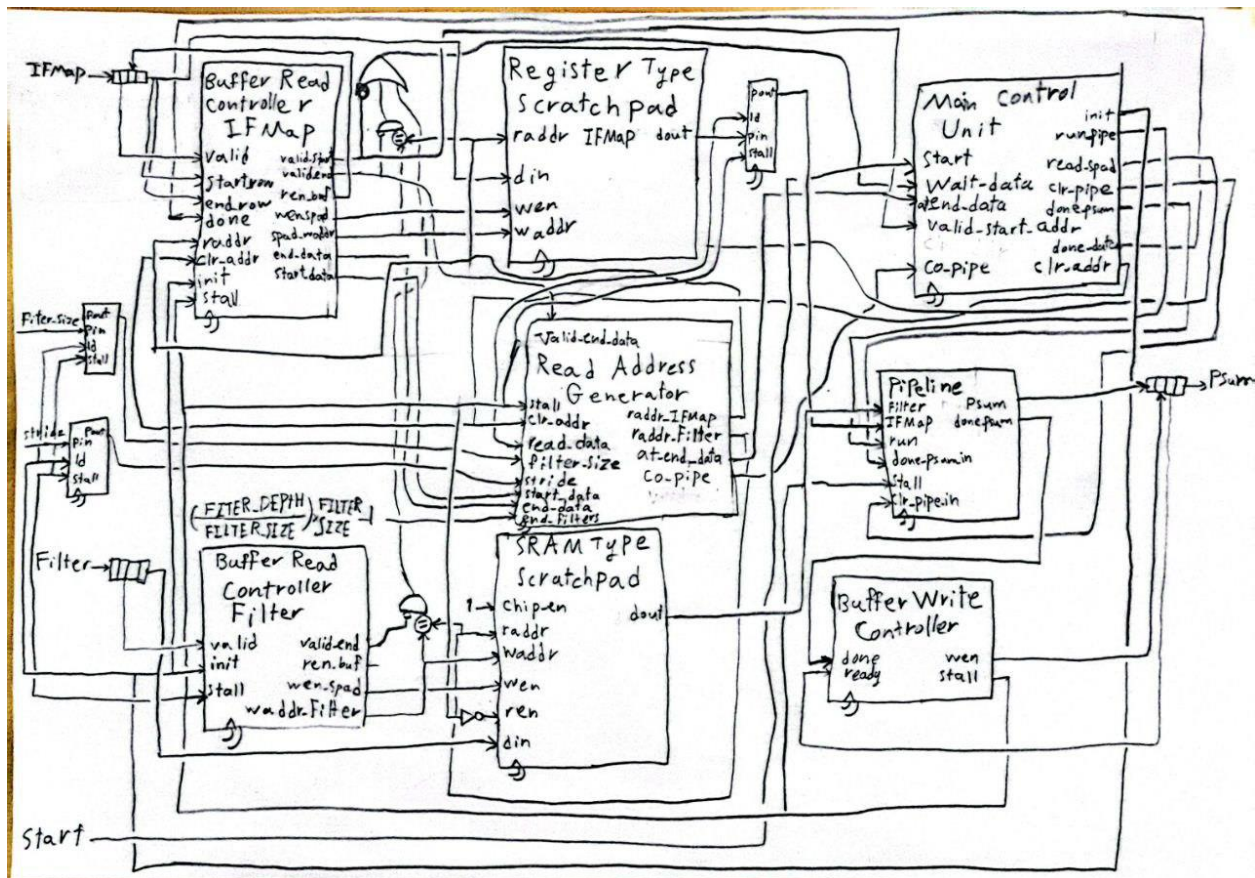 IFMap
Buffer Read
Controller
IFMap
valid
start_row
end_row
done
raddr
clr_addr
init
stall
valid_start
valid_end
ren_buf
wen_spad
spad_waddr
end_data
start_data
=
Register Type
Scratchpad
raddr IFMap dout
din
wen
waddr
pout
ld
pin
stall
Main Control
Unit
start
wait_data
end_data
valid_start_addr
co_pipe
init
run_pipe
read_spad
clr_pipe
done_psum
done_data
clr_addr
Fiter_size
pout
pin
ld
stall
stride
pout
pin
ld
stall
Valid_end_data
Read Address
Generator
stall
clr_addr
read_data
filter_size
stride
start_data
end_data
end_filters
raddr_IFMap
raddr_Filter
at_end_data
co_pipe
Pipeline
Filter
IFMap
run
done_psum_in
stall
clr_pipe_in
Psum
done_psum
Psum
FITER_DEPTH
FILTER_SIZE
FILTER
SIZE
-1
Filter
Buffer Read
Controller
Filter
valid
init
stall
valid_end
ren_buf
wen_spad
waddr_Filter
=
SRAM Type
Scratchpad
1
chip_en
raddr
waddr
wen
ren
din
dout
Buffer Write
Controller
done
ready
wen
stall
Start